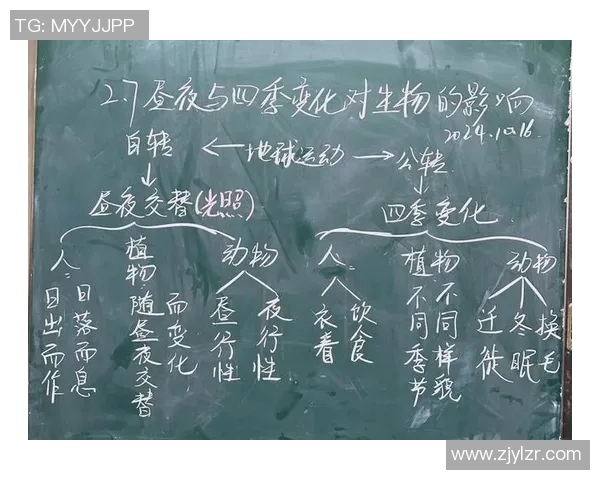 TG: MYYJJPP
2.7 昼夜与四季变化对生物的影响
2024.10.16.
自转 ← 地球运动 → 公转
昼夜交替(光照)
四季变化
人：
日出而作
日落而息
植物：随昼夜交替
而变化
动物
昼行性
夜行性
人：
衣着
饮食
植物
不同季节
不同样貌
动物
迁徙
冬眠
换毛
www.zjylzr.com